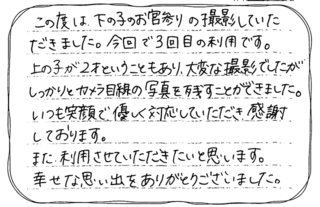 この度は、下の子のお宮参りの撮影していた
だきました。今回で3回目の利用です。
上の子が2才ということもあり、大変な撮影でしたが
しっかりとカメラ目線の写真を残すことができました。
いつも笑顔で優しく対応していただき感謝
しております。
また利用させていただきたいと思います。
幸せな思い出をありがとうございました。